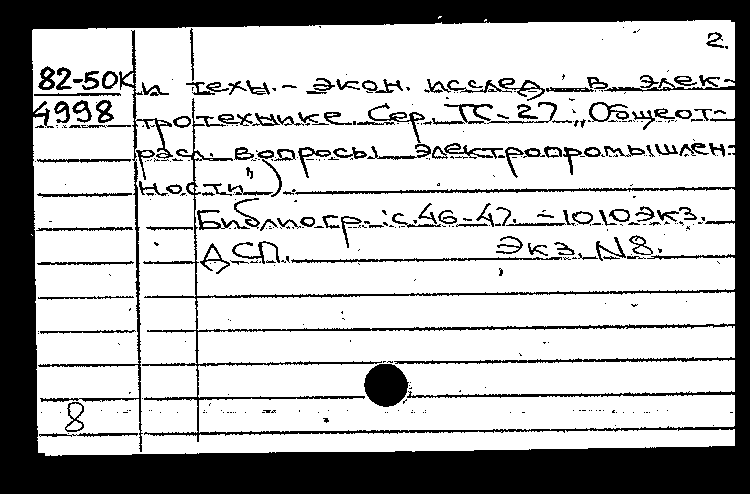 2.
82-50К и техн.-экон. исслед. в элек-
4998 тротехнике. Сер. ТС-27 „Общеот-
расл. вопросы электропромышлен-
ности").
Библиогр.: с. 46-47. - 1010 экз.
ДСП. Экз. N8.
8